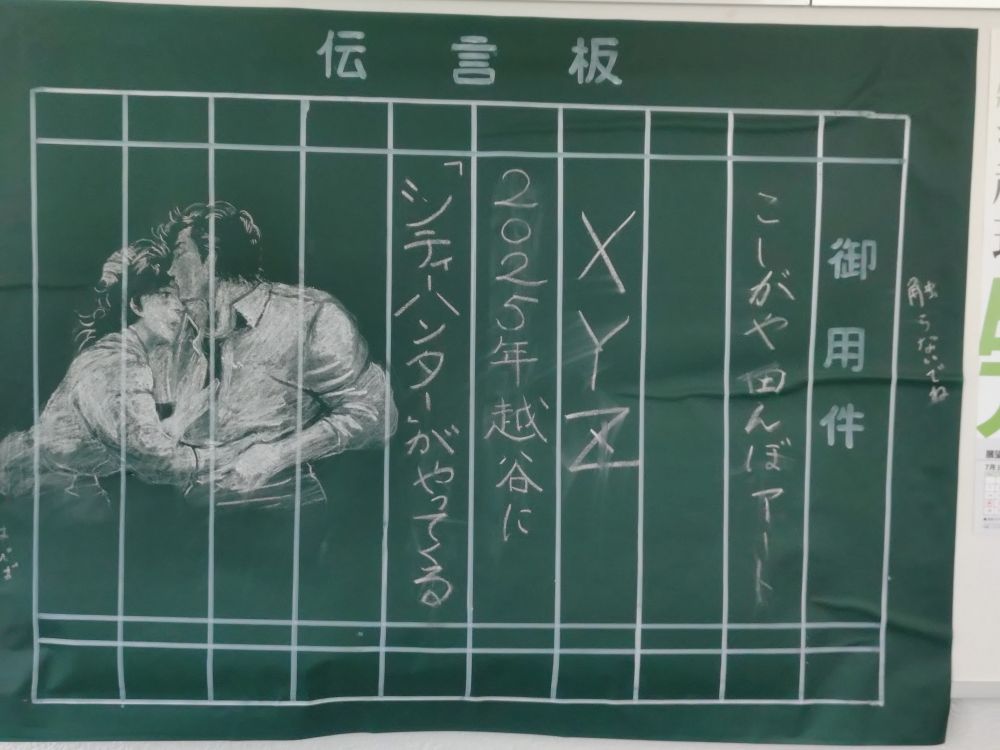 伝言板
御用件
こしがや田んぼアート
XYZ
2025年越谷に
「シティーハンター」がやってくる
触らないでね